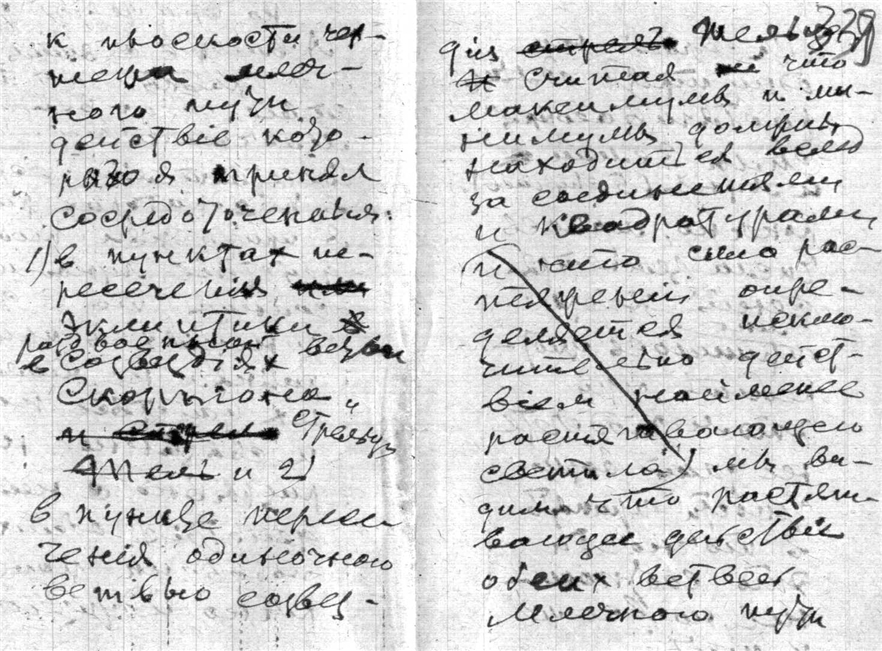 к плоскости
млеч-
ного пути
действие
принял
сосредоточения:
1) в пунктах пе-
ресечения или
эклиптики в
раздвоенной ветви
в созвездиях
Скорпиона
и стрел Стрельца
и 2)
в пункте пересе
чения одиночною
ветвью созвез-
339
дия
И считая что
максимумы и ми-
нимумы должны
находиться
за соединениями
и квадратурами
и что сила рас-
опре-
деляется исклю-
чительно дейст-
вием найменее
растягивающего
светила) мы ви-
дим что растяги
вающее действие
обеих ветвей
Млечного пути